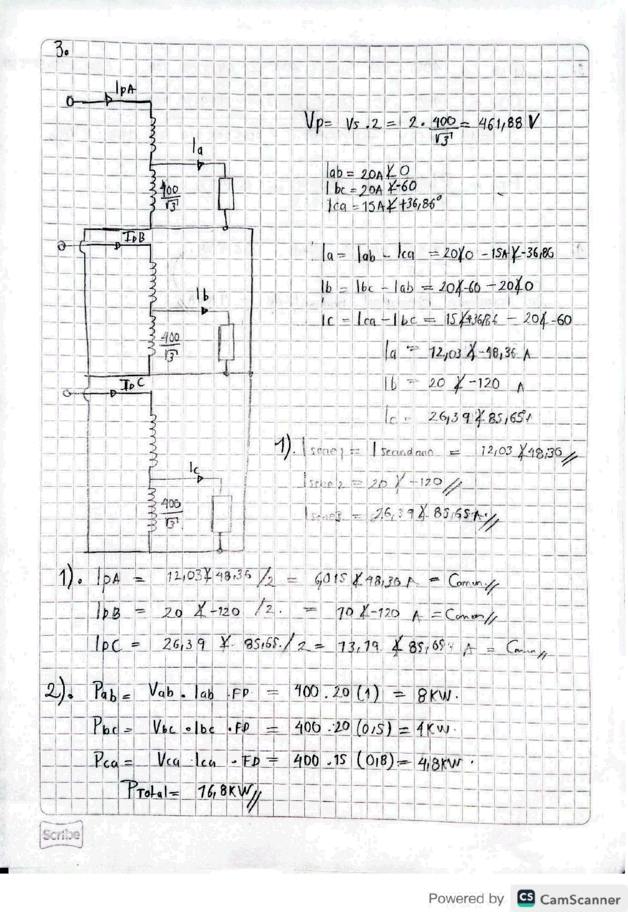 3.
IpA
Vp= Vs.2 = 2. 400/√3 = 461,88 V
Ia
400/√3
Iab = 20A∠0
Ibc = 20A∠-60
Ica = 15A∠+36,86°
IpB
Ia = Iab - Ica = 20∠0 - 15A∠-36,86
Ib
Ib = Ibc - Iab = 20∠-60 - 20∠0
Ic = Ica - Ibc = 15∠+36,86 - 20∠-60
400/√3
Ia = 12,03∠-48,36 A
IpC
Ib = 20∠-120 A
Ic = 26,39∠85,65°
1). Iserie1 = Isecundario = 12,03∠48,36
Ic
Iserie2 = 20∠-120
400/√3
Iserie3 = 26,39∠85,65A
1). IpA = 12,03∠48,36/2 = 6,015∠48,36 A = Comun
IpB = 20∠-120/2. = 10∠-120 A = Comun
IpC = 26,39∠85,65./2 = 13,19∠85,65 A = Comun
2). Pab = Vab . Iab . FP = 400.20(1) = 8KW.
Pbc = Vbc . Ibc . FP = 400.20(0,5) = 4KW.
Pca = Vca Ica . FP = 400.15(0,8) = 4,8KW.
PTotal = 16,8KW
Scribe
Powered by CS CamScanner